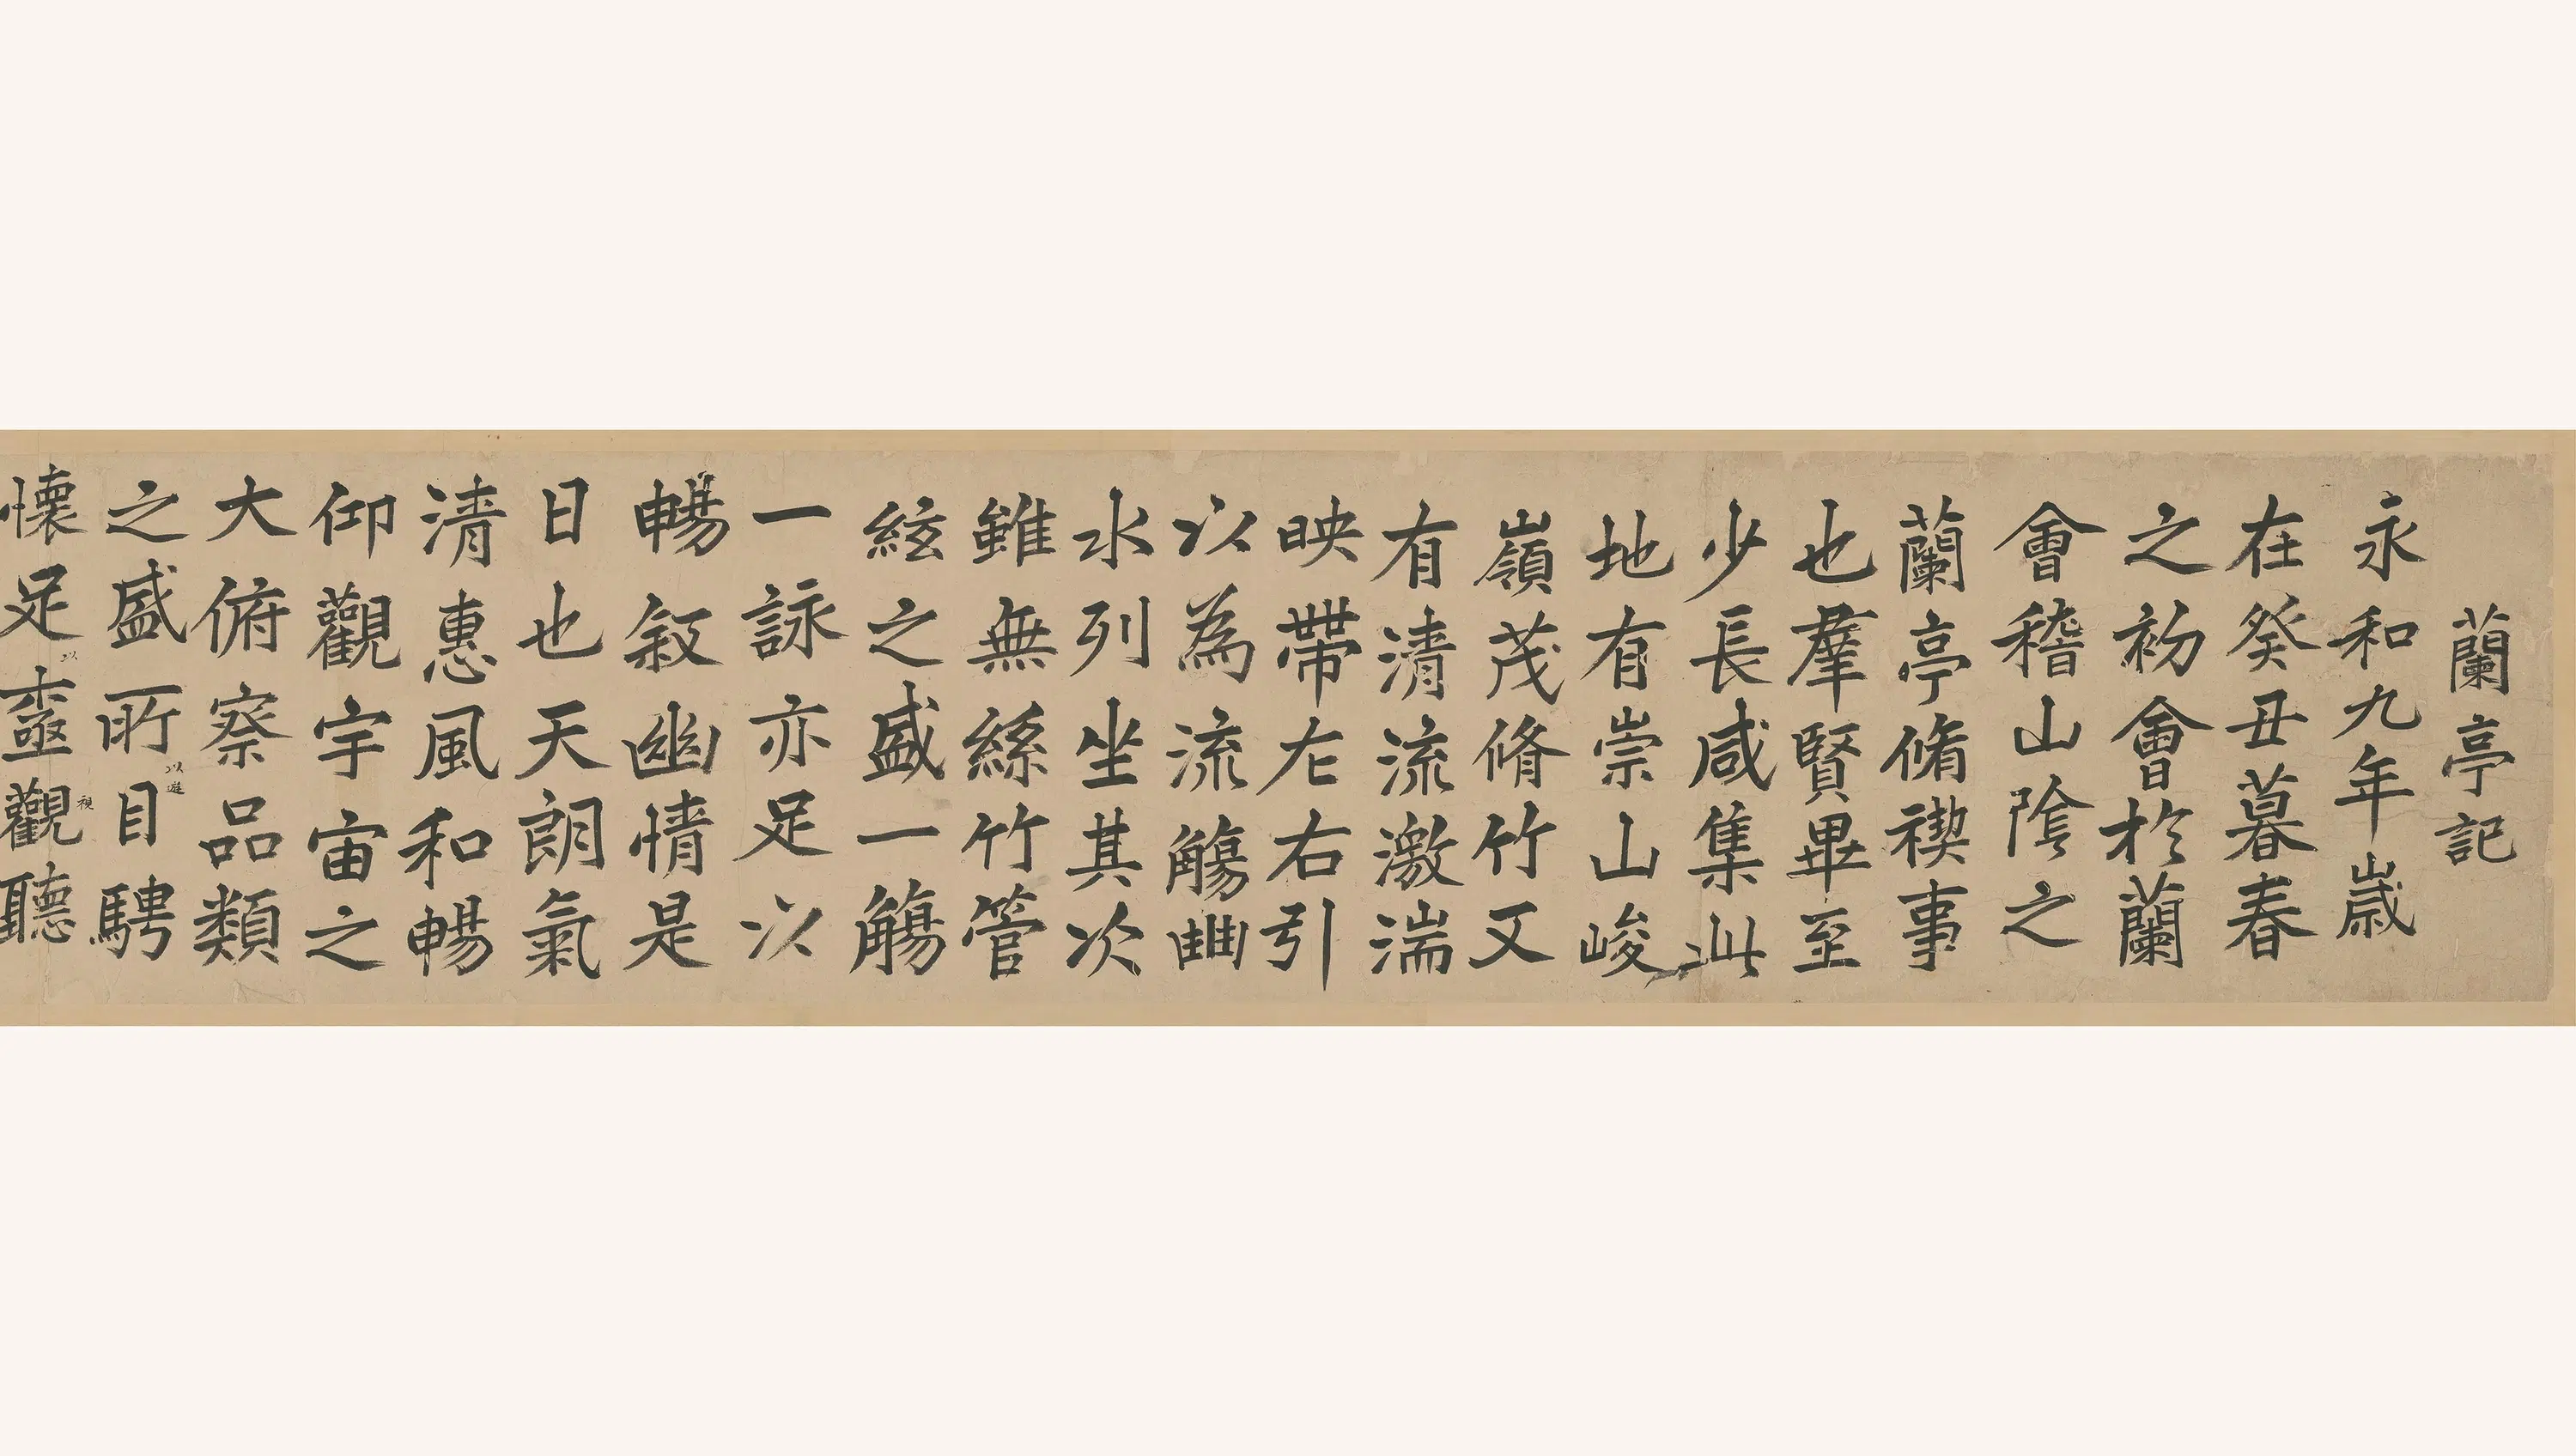 蘭亭記
永和九年歲
在癸丑暮春
之初會於蘭
會稽山陰之
蘭亭脩禊事
也羣賢畢至
少長咸集此
地有崇山峻
嶺茂脩竹又
有清流激湍
映帶左右引
以為流觴曲
水列坐其次
雖無絲竹管
絃之盛一觴
一詠亦足以
暢叙幽情是
日也天朗氣
清惠風和暢
仰觀宇宙之
大俯察品類
以遊
之盛所目騁
以
視
懷足觀聽